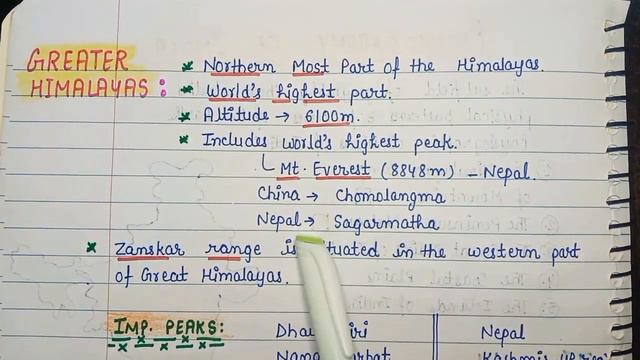 GREATER HIMALAYAS:
* Northern Most Part of the Himalayas.
* World's highest part.
* Altitude → 6100m.
* Includes world's highest peak.
Mt. Everest (8848m) - Nepal.
China → Chomolangma
Nepal → Sagarmatha
* Zanskar range is situated in the western part
of Great Himalayas.
IMP. PEAKS:
Nepal